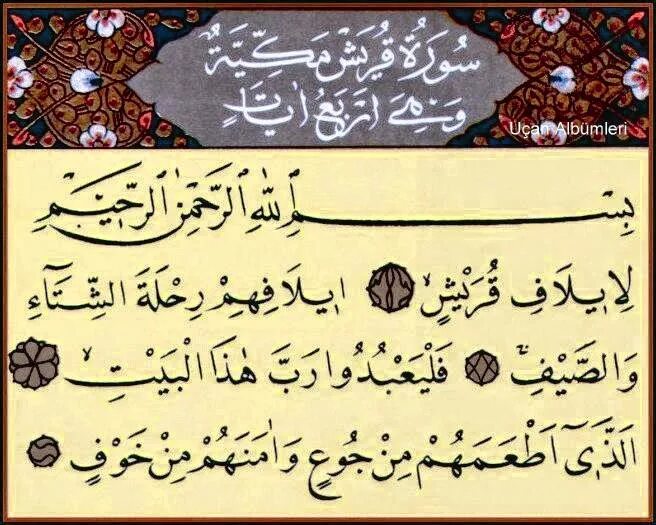 سُورَةُ قُرَيْشٍ مَكِّيَّةٌ
وَهِيَ اَرْبَعُ اٰيَاتٍ
Uçan Albümleri
بِسْمِ اللّٰهِ الرَّحْمٰنِ الرَّحٖيمِ
لِاٖيلَافِ قُرَيْشٍ اٖيلَافِهِمْ رِحْلَةَ الشِّتَٓاءِ
وَالصَّيْفِ فَلْيَعْبُدُوا رَبَّ هٰذَا الْبَيْتِ
اَلَّذٖٓى اَطْعَمَهُمْ مِنْ جُوعٍ وَاٰمَنَهُمْ مِنْ خَوْفٍ